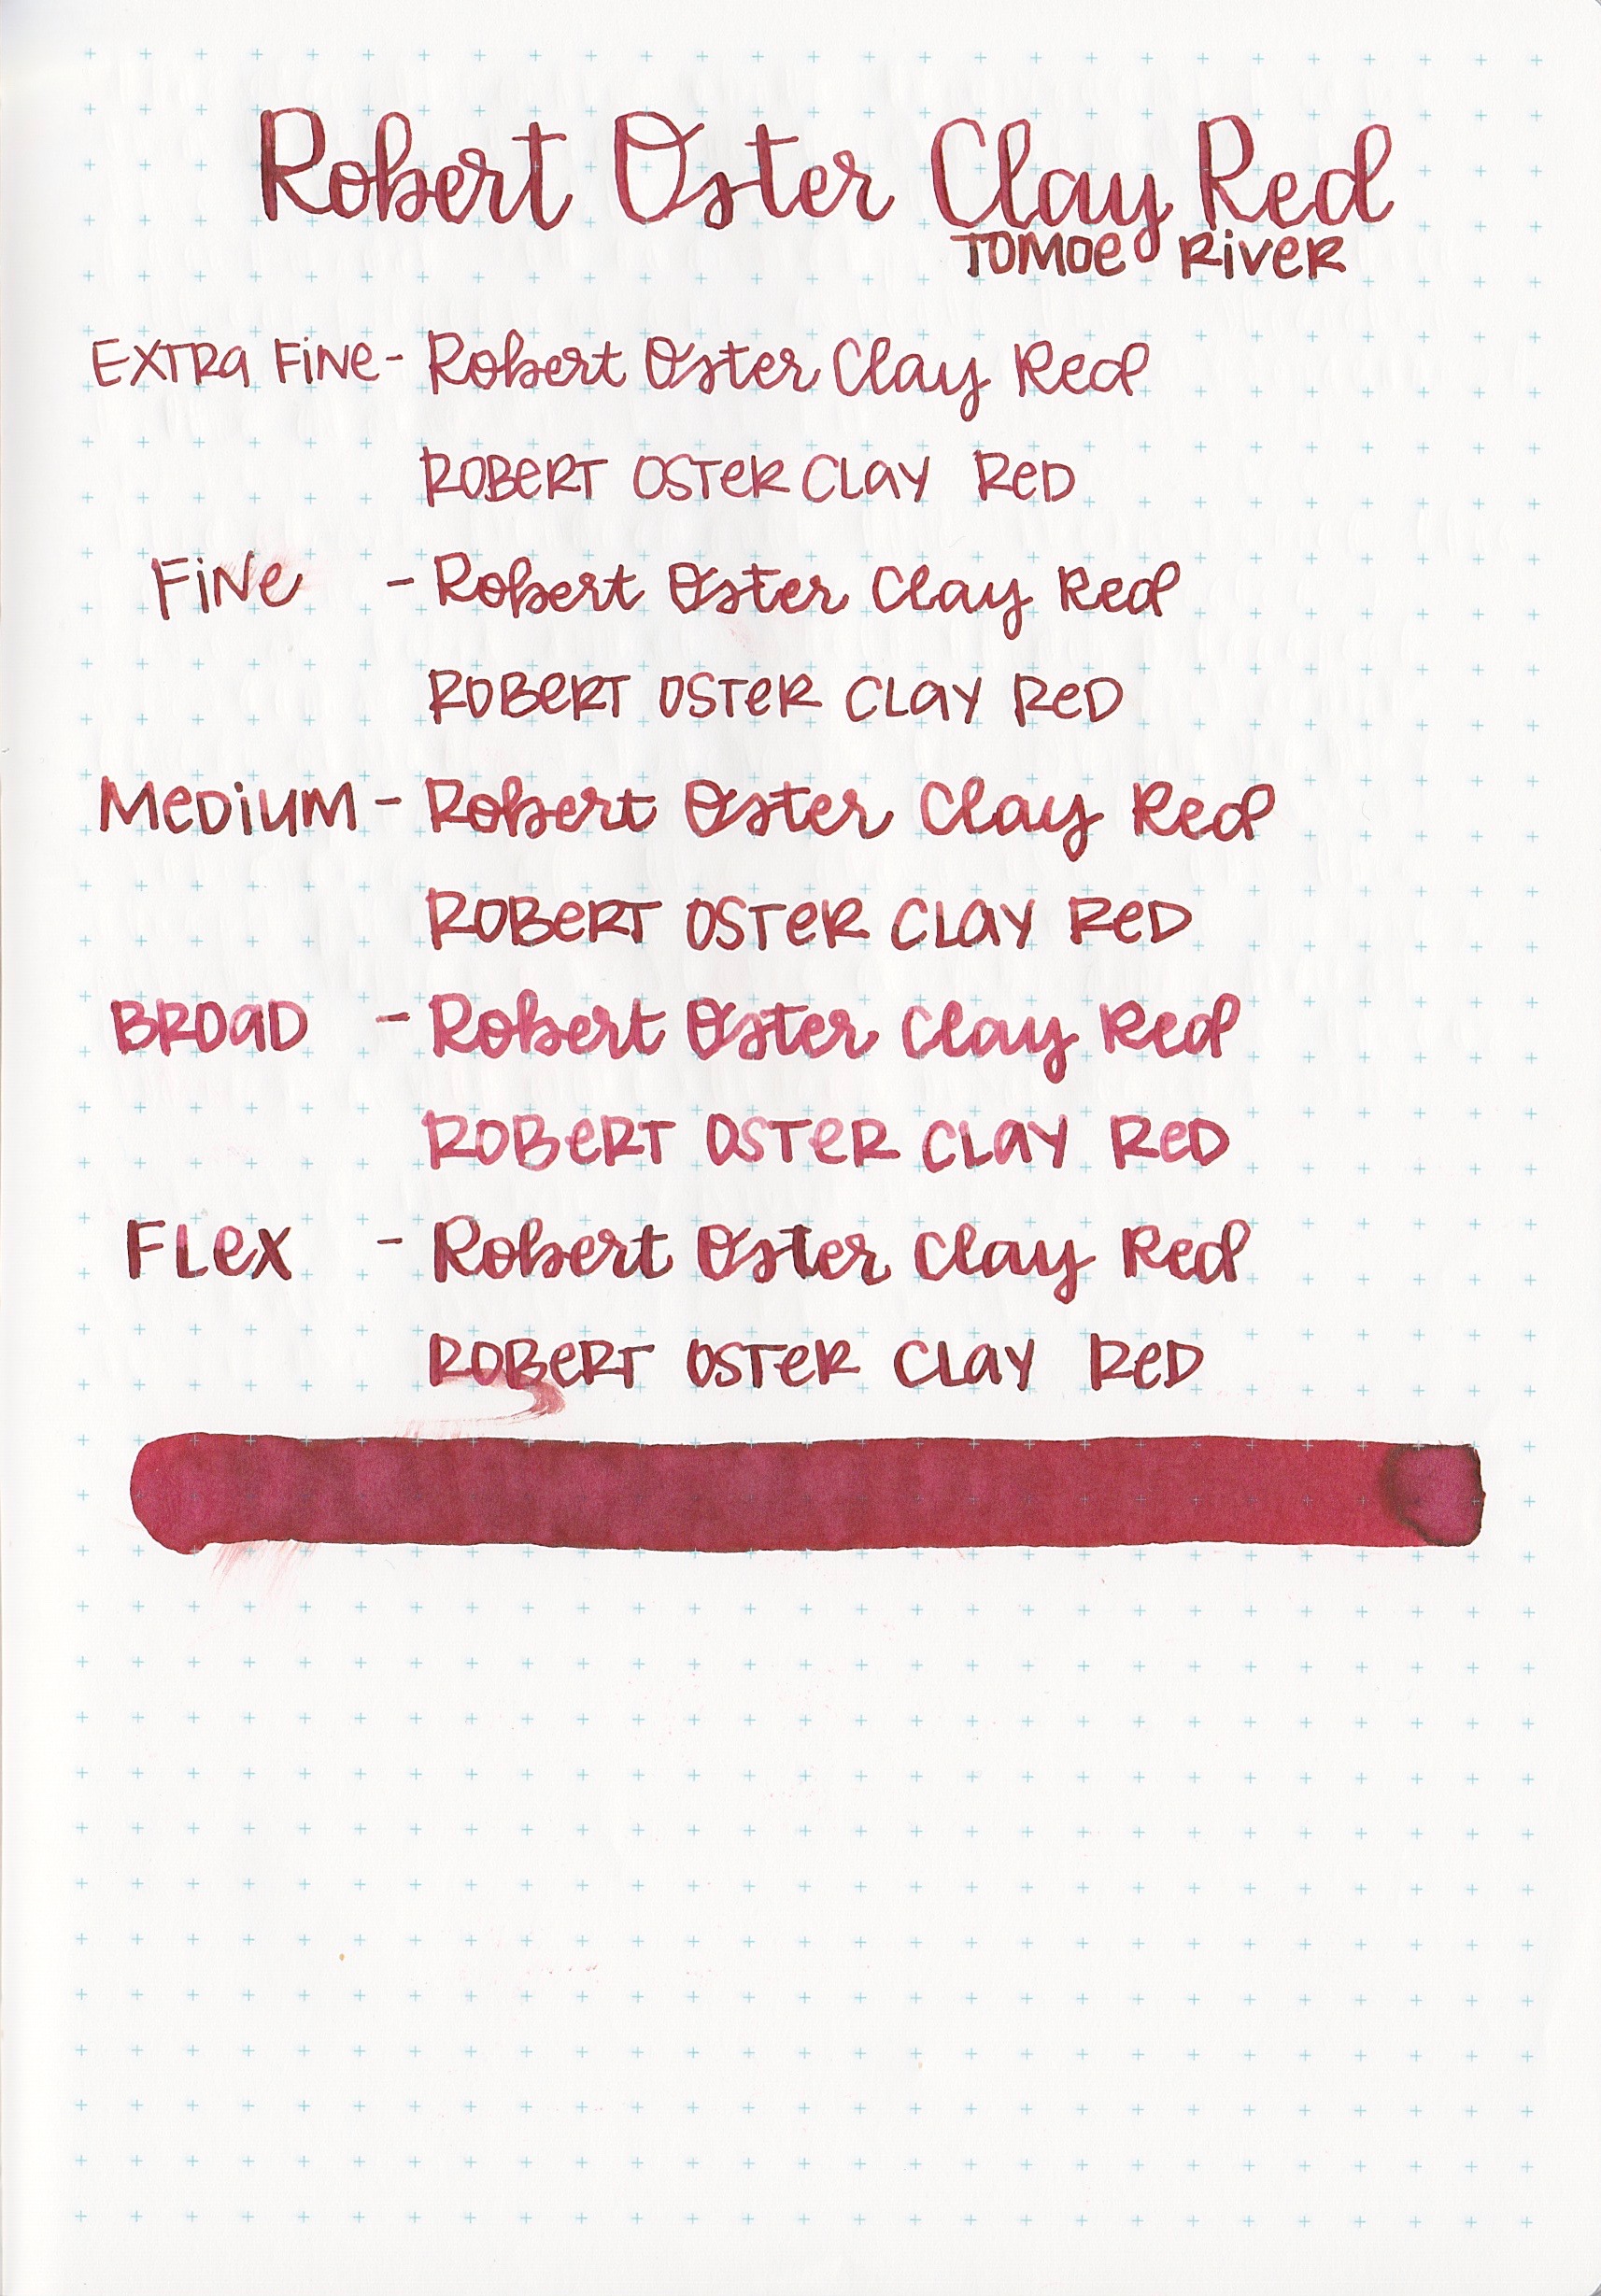 Robert Oster Clay Red
TOMOE RiVER
EXTRa FiNE - Robert Oster Clay Red
ROBERT OSTER CLAY RED
FiNe - Robert Oster Clay Red
ROBERT OSTER CLAY RED
MeDiUM - Robert Oster Clay Red
ROBERT OSTER CLAY RED
BROaD - Robert Oster Clay Red
ROBERT OSTER CLAY RED
FLeX - Robert Oster Clay Red
ROBERT OSTER CLAY RED